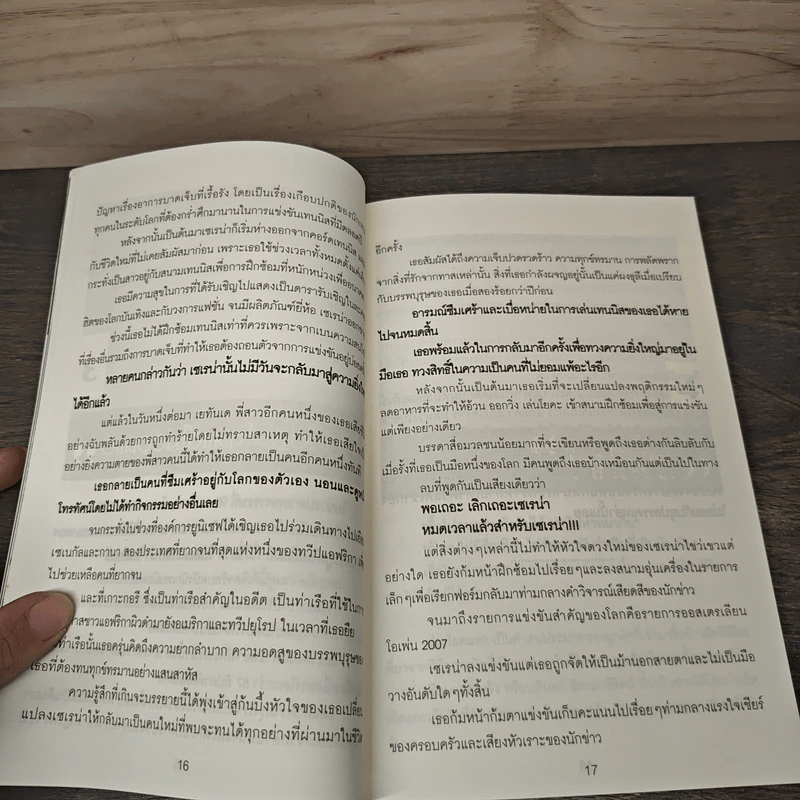 ปัญหาเรื่องอาการบาดเจ็บที่เรื้อรัง โดยเป็นเรื่องเกือบปกติของนัก
ทุกคนในระดับโลกที่ต้องกรำศึกมานานในการแข่งขันเทนนิสที่มีตลอด
หลังจากนั้นเป็นต้นมาเซเรน่าก็เริ่มห่างออกจากคอร์ดเทนนิส
กับชีวิตใหม่ที่ไม่เคยสัมผัสมาก่อน เพราะเธอใช้ช่วงเวลาทั้งหมดตั้งแต่
กระทั่งเป็นสาวอยู่กับสนามเทนนิสเพื่อการฝึกซ้อมที่หนักหน่วงเพื่ออนาคต
เธอมีความสุขในการที่ได้รับเชิญไปแสดงเป็นดารารับเชิญใน
ฮิตของโลกบันเทิงและวงการแฟชั่น จนมีผลิตภัณฑ์ยี่ห้อ เซเรน่าออก
ช่วงนี้เธอไม่ได้ฝึกซ้อมเทนนิสเท่าที่ควรเพราะจากเบนความสนใจ
ที่เรื่องอื่นรวมถึงการบาดเจ็บที่ทำให้เธอต้องถอนตัวจากการแข่งขันอยู่
หลายคนกล่าวกันว่า เซเรน่านั้นไม่มีวันจะกลับมาสู่ความยิ่ง
ได้อีกแล้ว
แต่แล้วในวันหนึ่งต่อมา เยทันเด พี่สาวอีกคนหนึ่งของเธอเสีย
อย่างฉับพลันด้วยการถูกทำร้ายโดยไม่ทราบสาเหตุ ทำให้เธอเสียใจ
อย่างยิ่งความตายของพี่สาวคนนี้ได้ทำให้เธอกลายเป็นคนอีกคนหนึ่งทันที
เธอกลายเป็นคนที่ซึมเศร้าอยู่กับโลกของตัวเอง นอนและดู
โทรทัศน์โดยไม่ได้ทำกิจกรรมอย่างอื่นเลย
จนกระทั่งในช่วงที่องค์การยูนิเซฟได้เชิญเธอไปร่วมเดินทางไป
เซเนกัลและกานา สองประเทศที่ยากจนที่สุดแห่งหนึ่งของทวีปแอฟริกา
ไปช่วยเหลือคนที่ยากจน
และที่เกาะกอรี ซึ่งเป็นท่าเรือสำคัญในอดีต เป็นท่าเรือที่ใช้ใน
าสชาวแอฟริกาผิวดำมายังอเมริกาและทวีปยุโรป ในเวลาที่เธอยืน
ท่าเรือนั้นเธอครุ่นคิดถึงความยากลำบาก ความอดสูของบรรพบุรุษของ
เธอที่ต้องทนทุกข์ทรมานอย่างแสนสาหัส
ความรู้สึกที่เกินจะบรรยายนี้ได้พุ่งเข้าสู่ก้นบึ้งหัวใจของเธอเปลี่ยน
แปลงเซเรน่าให้กลับมาเป็นคนใหม่ที่พบจะทนได้ทุกอย่างที่ผ่านมาในชีวิต
16
อีกครั้ง
เธอสัมผัสได้ถึงความเจ็บปวดรวดร้าว ความทุกข์ทรมาน การพลัดพราก
จากสิ่งที่รักจากทาสเหล่านั้น สิ่งที่เธอกำลังผจญอยู่นั้นเป็นแค่ผงธุลีเมื่อเปรียบ
กับบรรพบุรุษของเธอเมื่อสองร้อยกว่าปีก่อน
อารมณ์ซึมเศร้าและเบื่อหน่ายในการเล่นเทนนิสของเธอได้หาย
ไปจนหมดสิ้น
เธอพร้อมแล้วในการกลับมาอีกครั้งเพื่อทวงความยิ่งใหญ่มาอยู่ใน
มือเธอ ทวงสิทธิ์ในความเป็นคนที่ไม่ยอมแพ้อะไรอีก
หลังจากนั้นเป็นต้นมาเธอเริ่มที่จะเปลี่ยนแปลงพฤติกรรมใหม่ๆ
ลดอาหารที่จะทำให้อ้วน ออกวิ่ง เล่นโยคะ เข้าสนามฝึกซ้อมเพื่อสู่การแข่งขัน
แต่เพียงอย่างเดียว
บรรดาสื่อมวลชนน้อยมากที่จะเขียนหรือพูดถึงเธอต่างกันลิบลับกับ
เมื่อรั้งที่เธอเป็นมือหนึ่งของโลก มีคนพูดถึงเธอบ้างเหมือนกันแต่เป็นไปในทาง
ลบที่พูดกันเป็นเสียงเดียวว่า
พอเถอะ เลิกเถอะเซเรน่า
หมดเวลาแล้วสำหรับเซเรน่า!!!
แต่สิ่งต่างๆเหล่านี้ไม่ทำให้หัวใจดวงใหม่ของเซเรน่าไขว่เขวแต่
อย่างใด เธอยังก้มหน้าฝึกซ้อมไปเรื่อยๆและลงสนามอุ่นเครื่องในรายการ
เล็กๆเพื่อเรียกฟอร์มกลับมาท่ามกลางคำวิจารณ์เสียดสีของนักข่าว
จนมาถึงรายการแข่งขันสำคัญของโลกคือรายการออสเตรเลียน
โอเพ่น 2007
เซเรน่าลงแข่งขันแต่เธอถูกจัดให้เป็นม้านอกสายตาและไม่เป็นมือ
วางอันดับใดๆทั้งสิ้น
เธอก้มหน้าก้มตาแข่งขันเก็บคะแนนไปเรื่อยๆท่ามกลางแรงใจเชียร์
ของครอบครัวและเสียงหัวเราะของนักข่าว
17